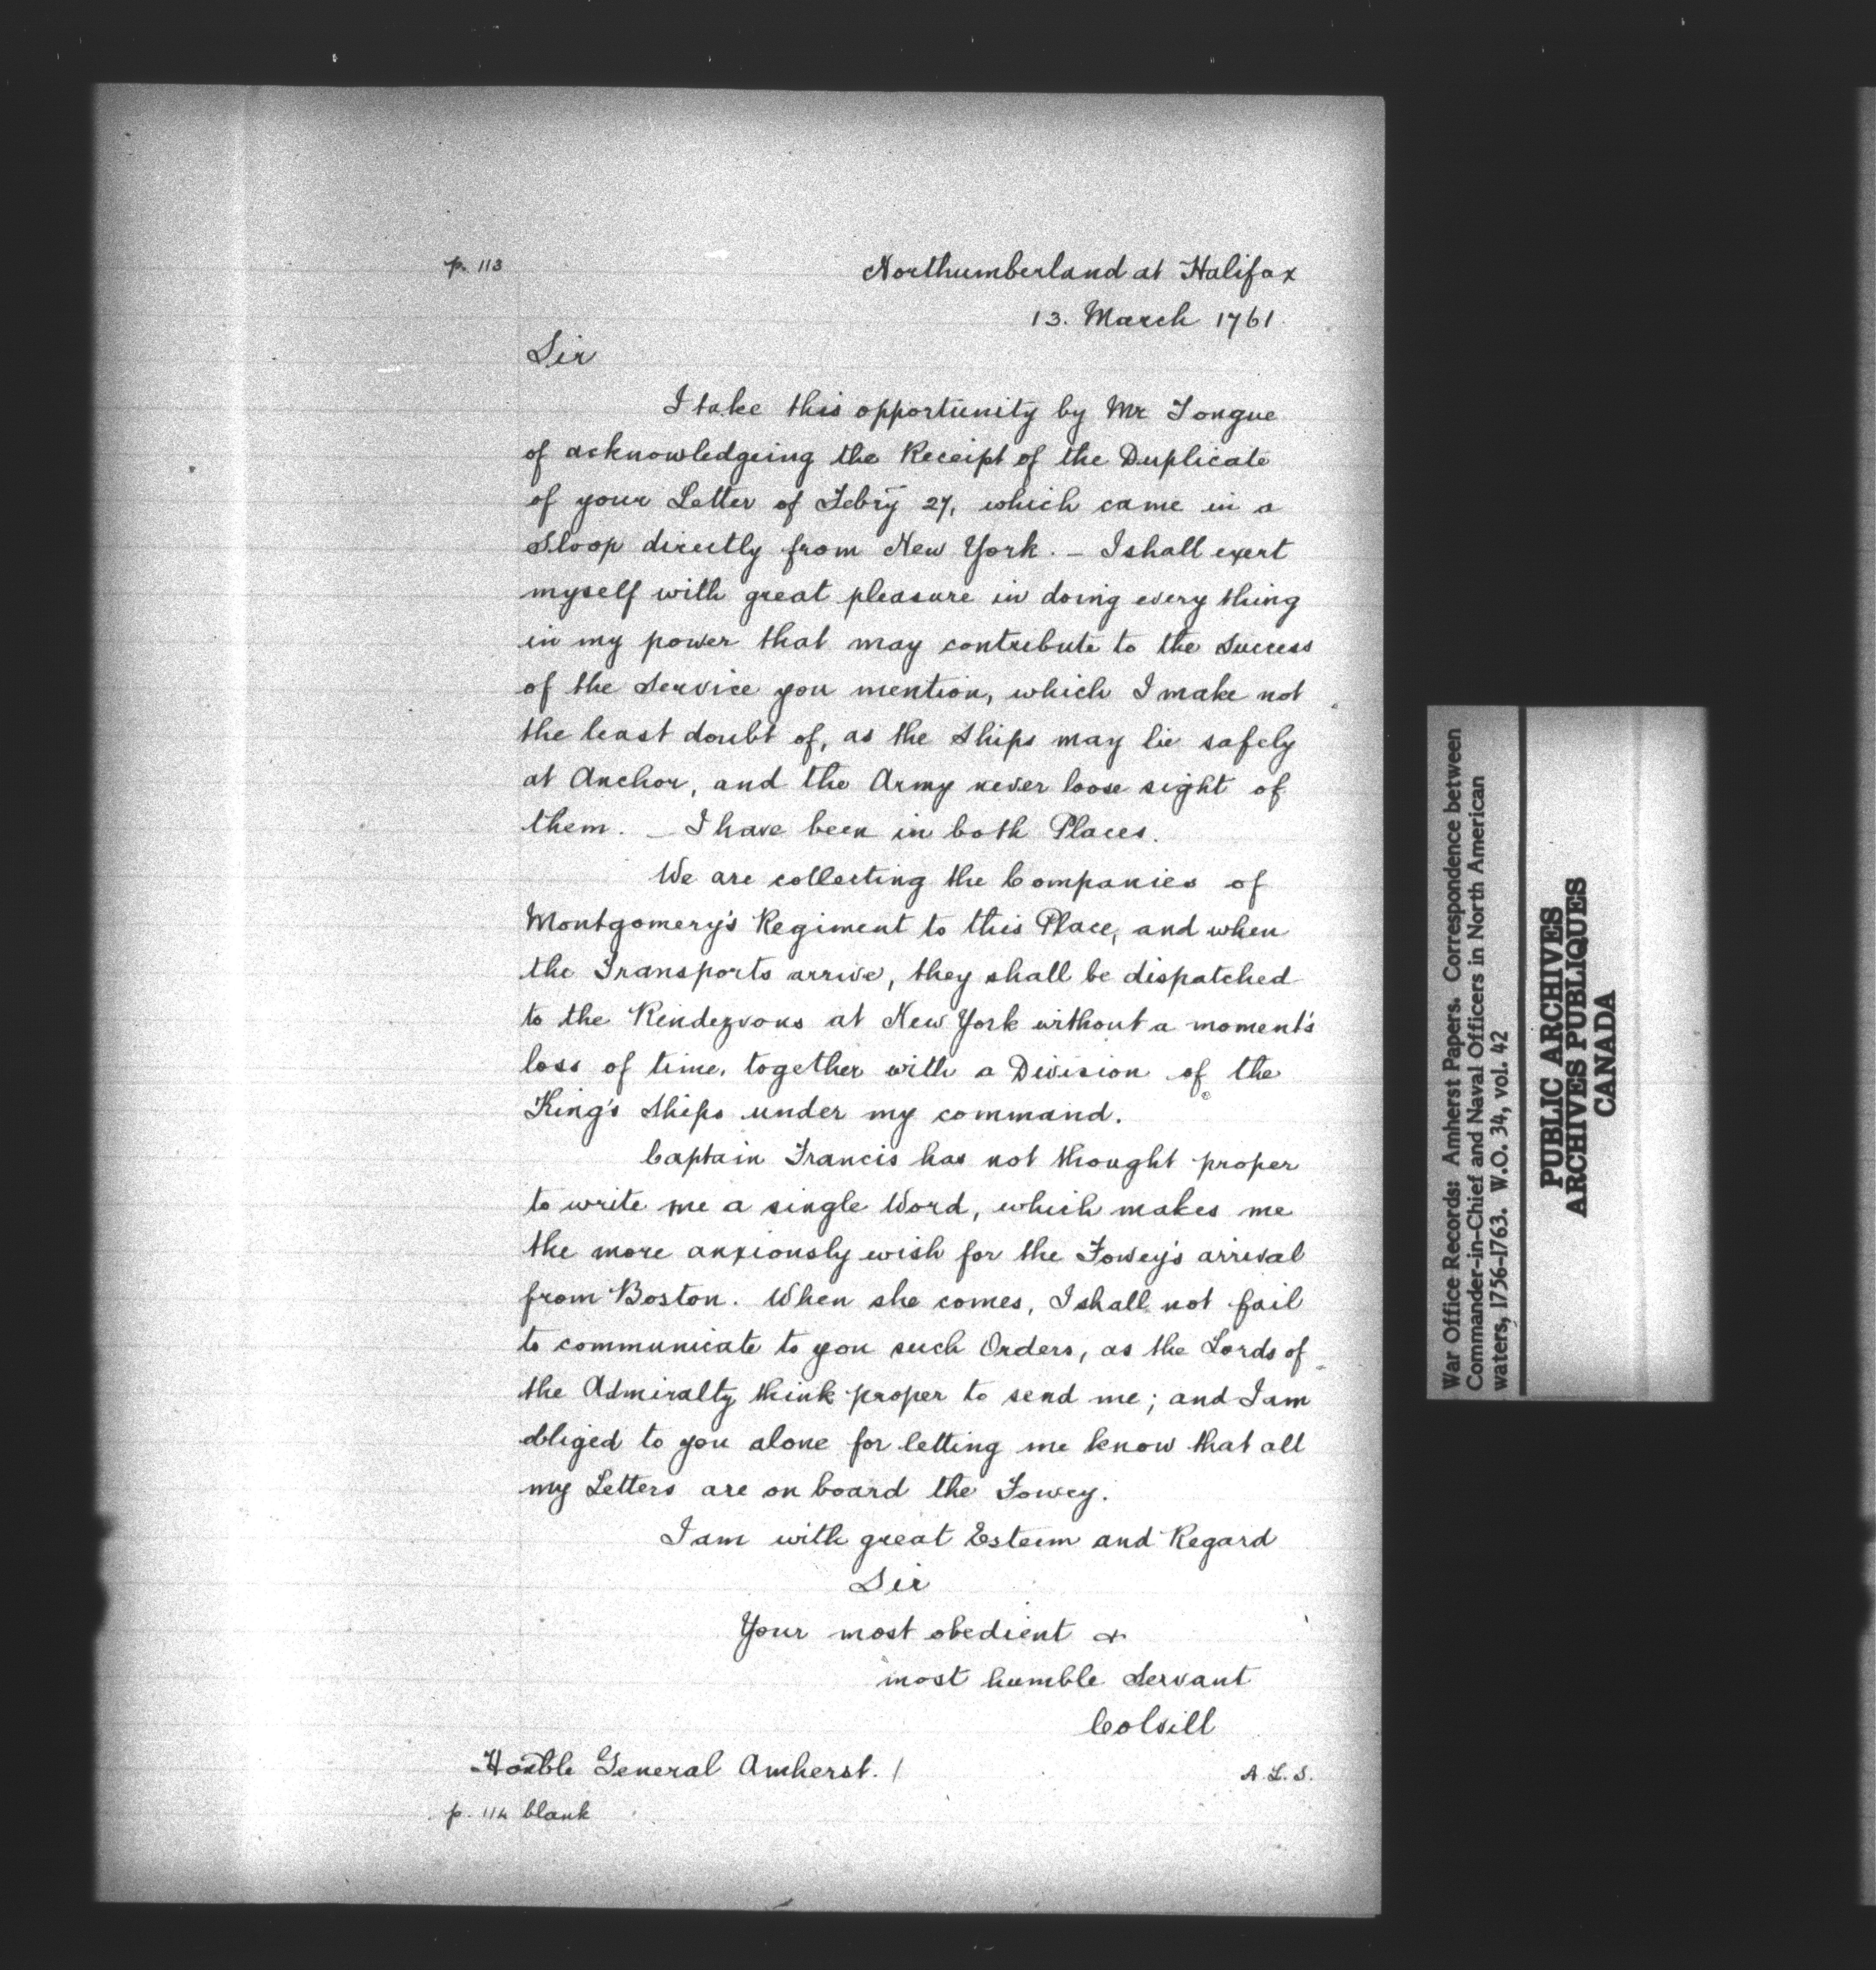 p. 113
Northumberland at Halifax
13. March 1761.
Sir
I take this opportunity by Mr Tongue
of acknowledgeing the Receipt of the Duplicate
of your Letter of Febry 27, which came in a
Sloop directly from New York. – I shall exert
myself with great pleasure in doing every thing
in my power that may contribute to the Success
of the Service you mention, which I make not
the least doubt of, as the Ships may lie safely
at Anchor, and the Army never loose sight of
them. – I have been in both Places.
We are collecting the Companies of
Montgomery's Regiment to this Place, and when
the Transports arrive, they shall be dispatched
to the Rendezvous at New York without a moment's
loss of time, together with a Division of the
King's Ships under my command.
Captain Francis has not thought proper
to write me a single Word, which makes me
the more anxiously wish for the Fowey's arrival
from Boston. When she comes, I shall not fail
to communicate to you such Orders, as the Lords of
the Admiralty think proper to send me; and I am
obliged to you alone for letting me know that all
my Letters are on board the Fowey.
I am with great Esteem and Regard
Sir
Your most obedient &
most humble Servant
Colvill
Honble General Amherst. /
A. L. S.
p. 114 blank
War Office Records: Amherst Papers. Correspondence between
Commander-in-Chief and Naval Officers in North American
waters, 1756-1763. W.O. 34, vol. 42
PUBLIC ARCHIVES
ARCHIVES PUBLIQUES
CANADA